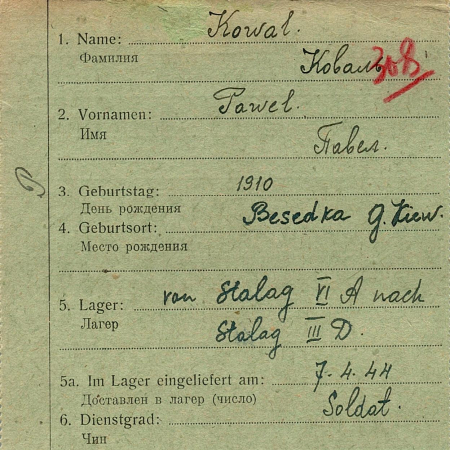 Kowal.
1. Name:
Фамилия
Коваль
308
2. Vornamen: Pawel.
Имя
Павел.
3. Geburtstag: 1910
День рождения
4. Geburtsort: Besedka G. Kiew.
Место рождения
5. Lager: von Stalag VI A nach
Лагер Stalag III D.
5a. Im Lager eingeliefert am: 7.4.44
Доставлен в лагер (число)
6. Dienstgrad: Soldat.
Чин